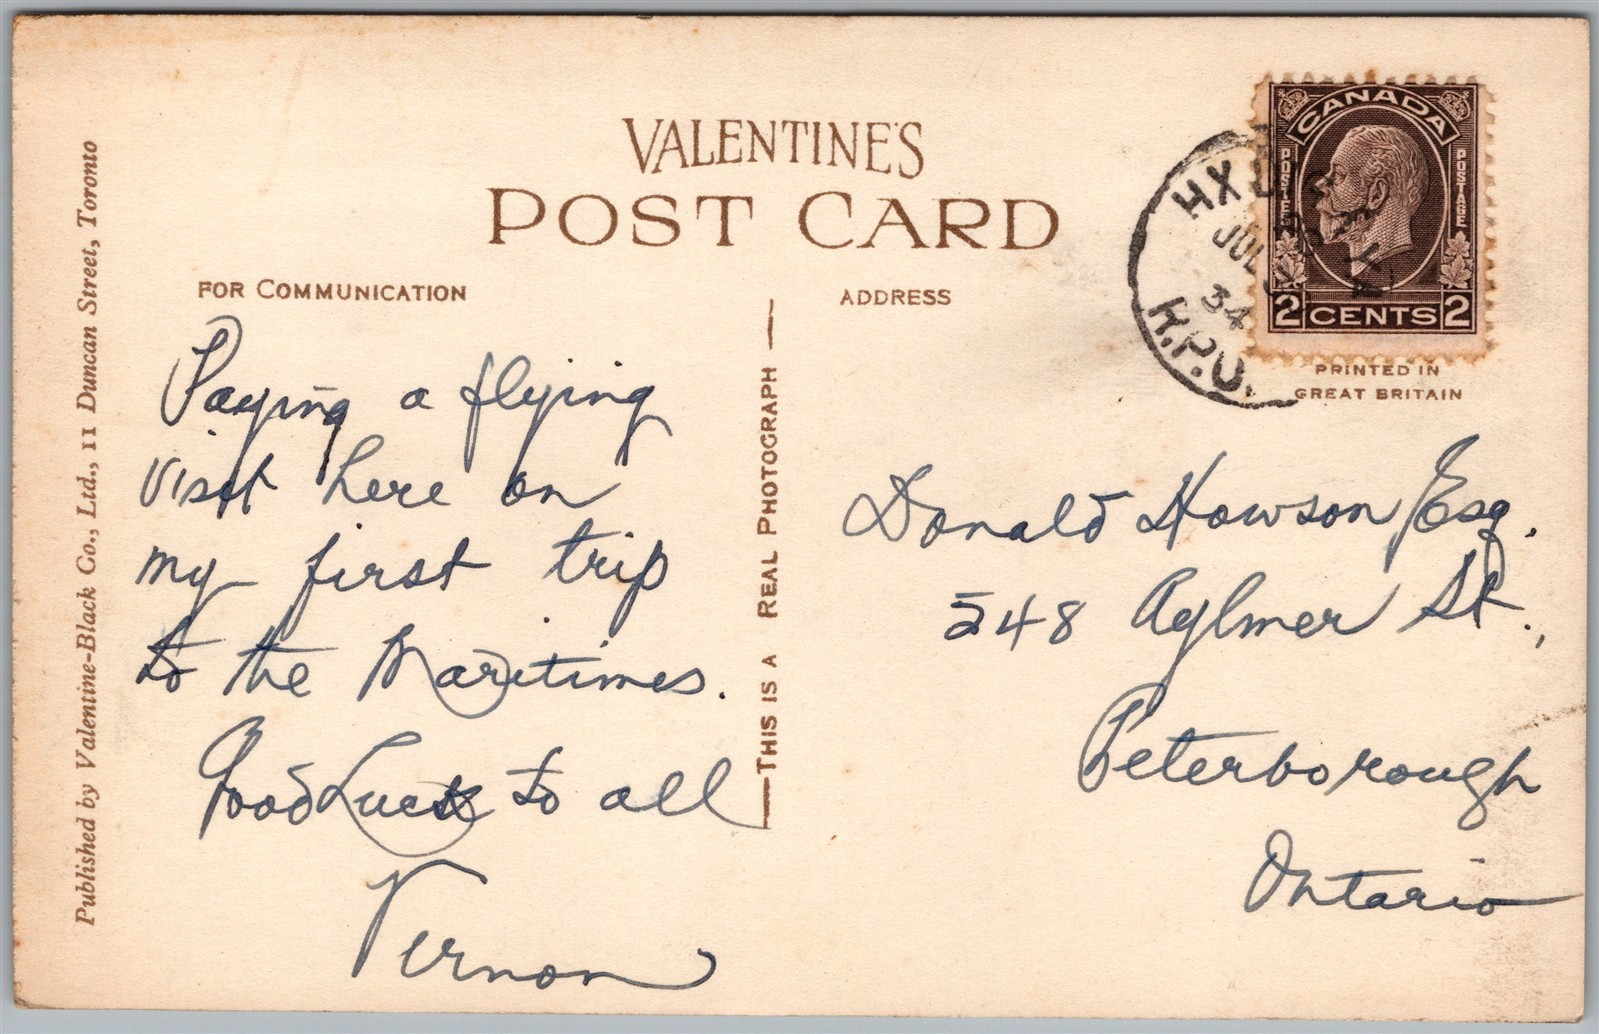 VALENTINE'S
POST CARD
FOR COMMUNICATION
ADDRESS
Published by Valentine-Black Co., Ltd., 11 Duncan Street, Toronto
Paying a flying
visit here on
my first trip
to the Maritimes.
Good Luck to all
Vernon
THIS IS A REAL PHOTOGRAPH
CANADA
POSTES
POSTAGE
2 CENTS 2
HX
JUL
34
R.P.O.
PRINTED IN
GREAT BRITAIN
Donald Howson Esq.
548 Aylmer St.,
Peterborough
Ontario